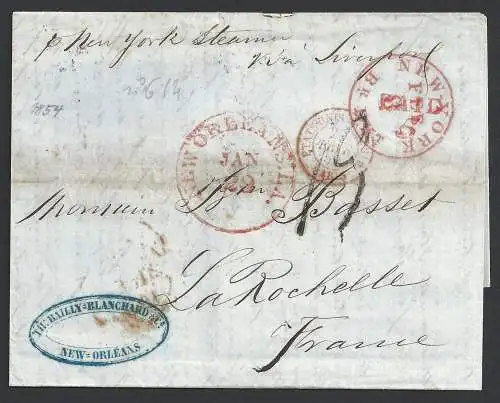 p New York Steamer
via Liverpool
1854
NEW YORK
FEB
8
BR. PKT
NEW ORLEANS LA.
JAN
28
Monsieur Bn Basset
La Rochelle
France
TH: BAILLY-BLANCHARD & Co
NEW-ORLÉANS